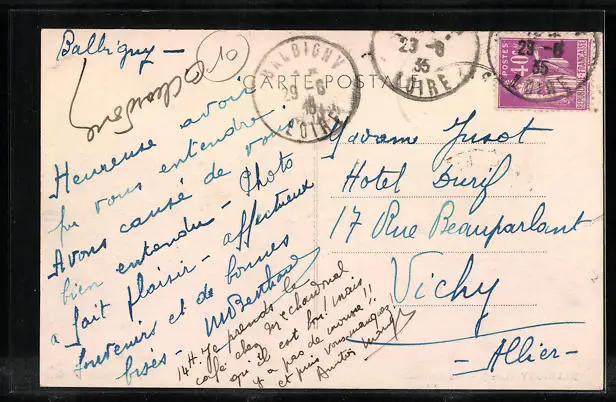 Balbigny —
10
CARTE POSTALE
BALBIGNY
29 - 6
35
LOIRE
23 - 6
35
LOIRE
23 - 6
35
LOIRE
POSTES
40c
REPUBLIQUE FRANÇAISE
Heureuse avoir
pu vous entendre
Avons causé de vous
bien entendu — Photo
a fait plaisir — affectueux
souvenirs et de bonnes
bises —
14H. Je prends le
café chez Me Chardonal
qu'il est bon! mais
y a pas de
et puis vous manquez!
Madame Jusot
Hotel Durif
17 Rue Beauparlant
Vichy
— Allier —